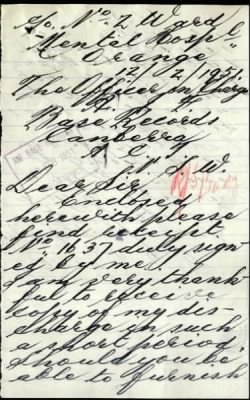 C/o. No. 2 Ward
Mental Hospl
Orange
12/2/1951
The Officer in Charge
Base Records
Canberry
A.C.T.
Dear Sir
Enclosed
herewith please
find receipt
No 1637 duly sign-
ed by me.
I am very thank-
ful to receive
copy of my dis-
charge in such
a short period
Should you be
able to furnish